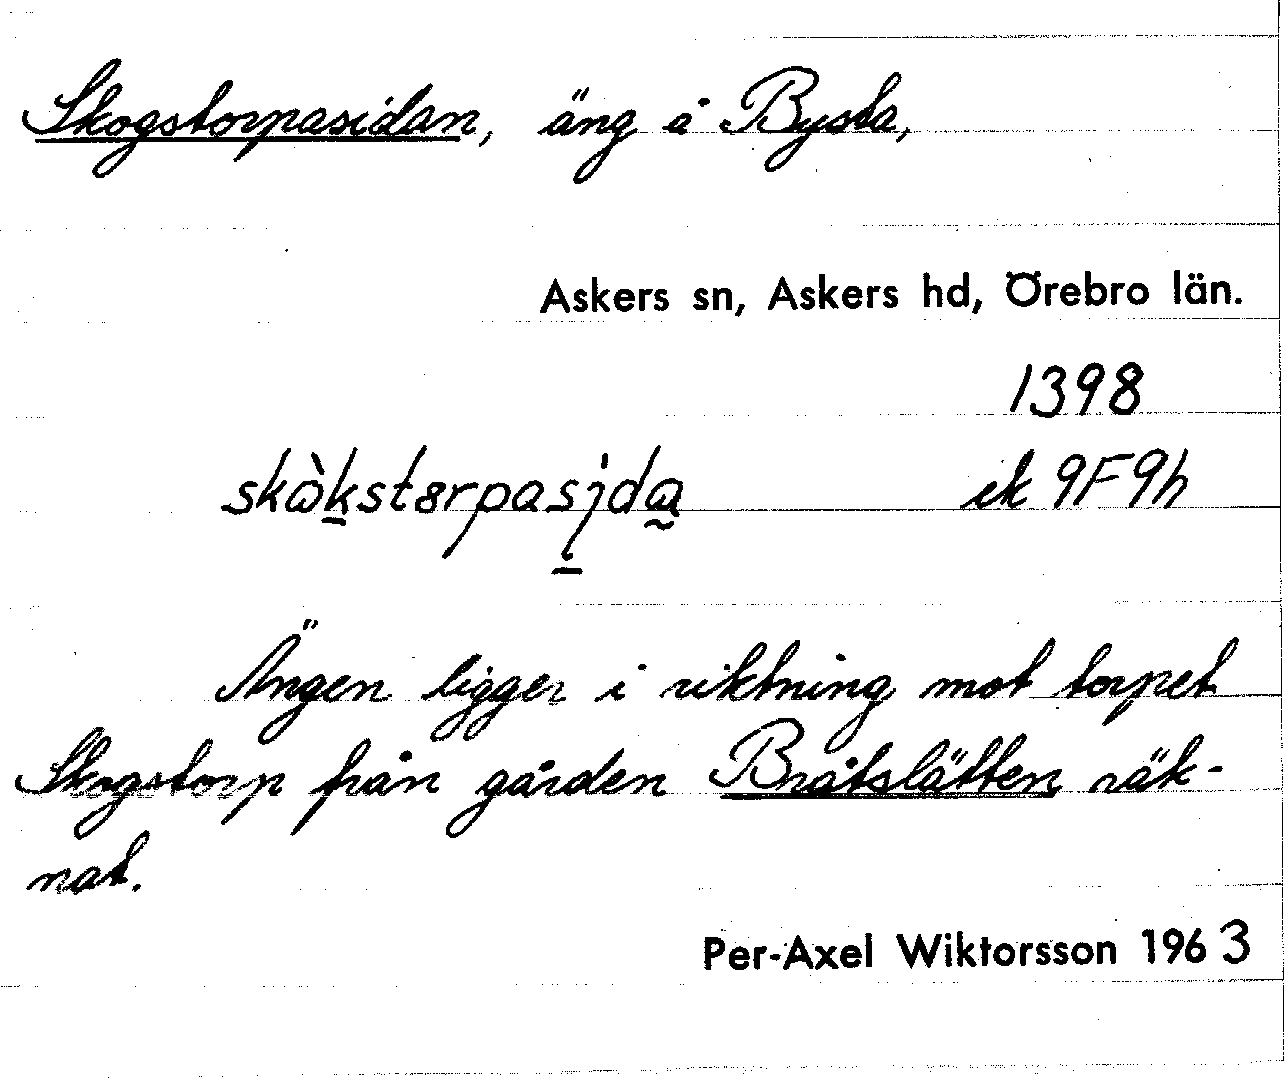 Skogstorpasidan, äng å Bysta,
Askers sn, Askers hd, Örebro län.
1398
skὼkstɞrpasịdα ek 9F9h
Ängen ligger i riktning mot torpet
Skogstorp från gården Bråtslätten räk-
nat.
Per-Axel Wiktorsson 1963